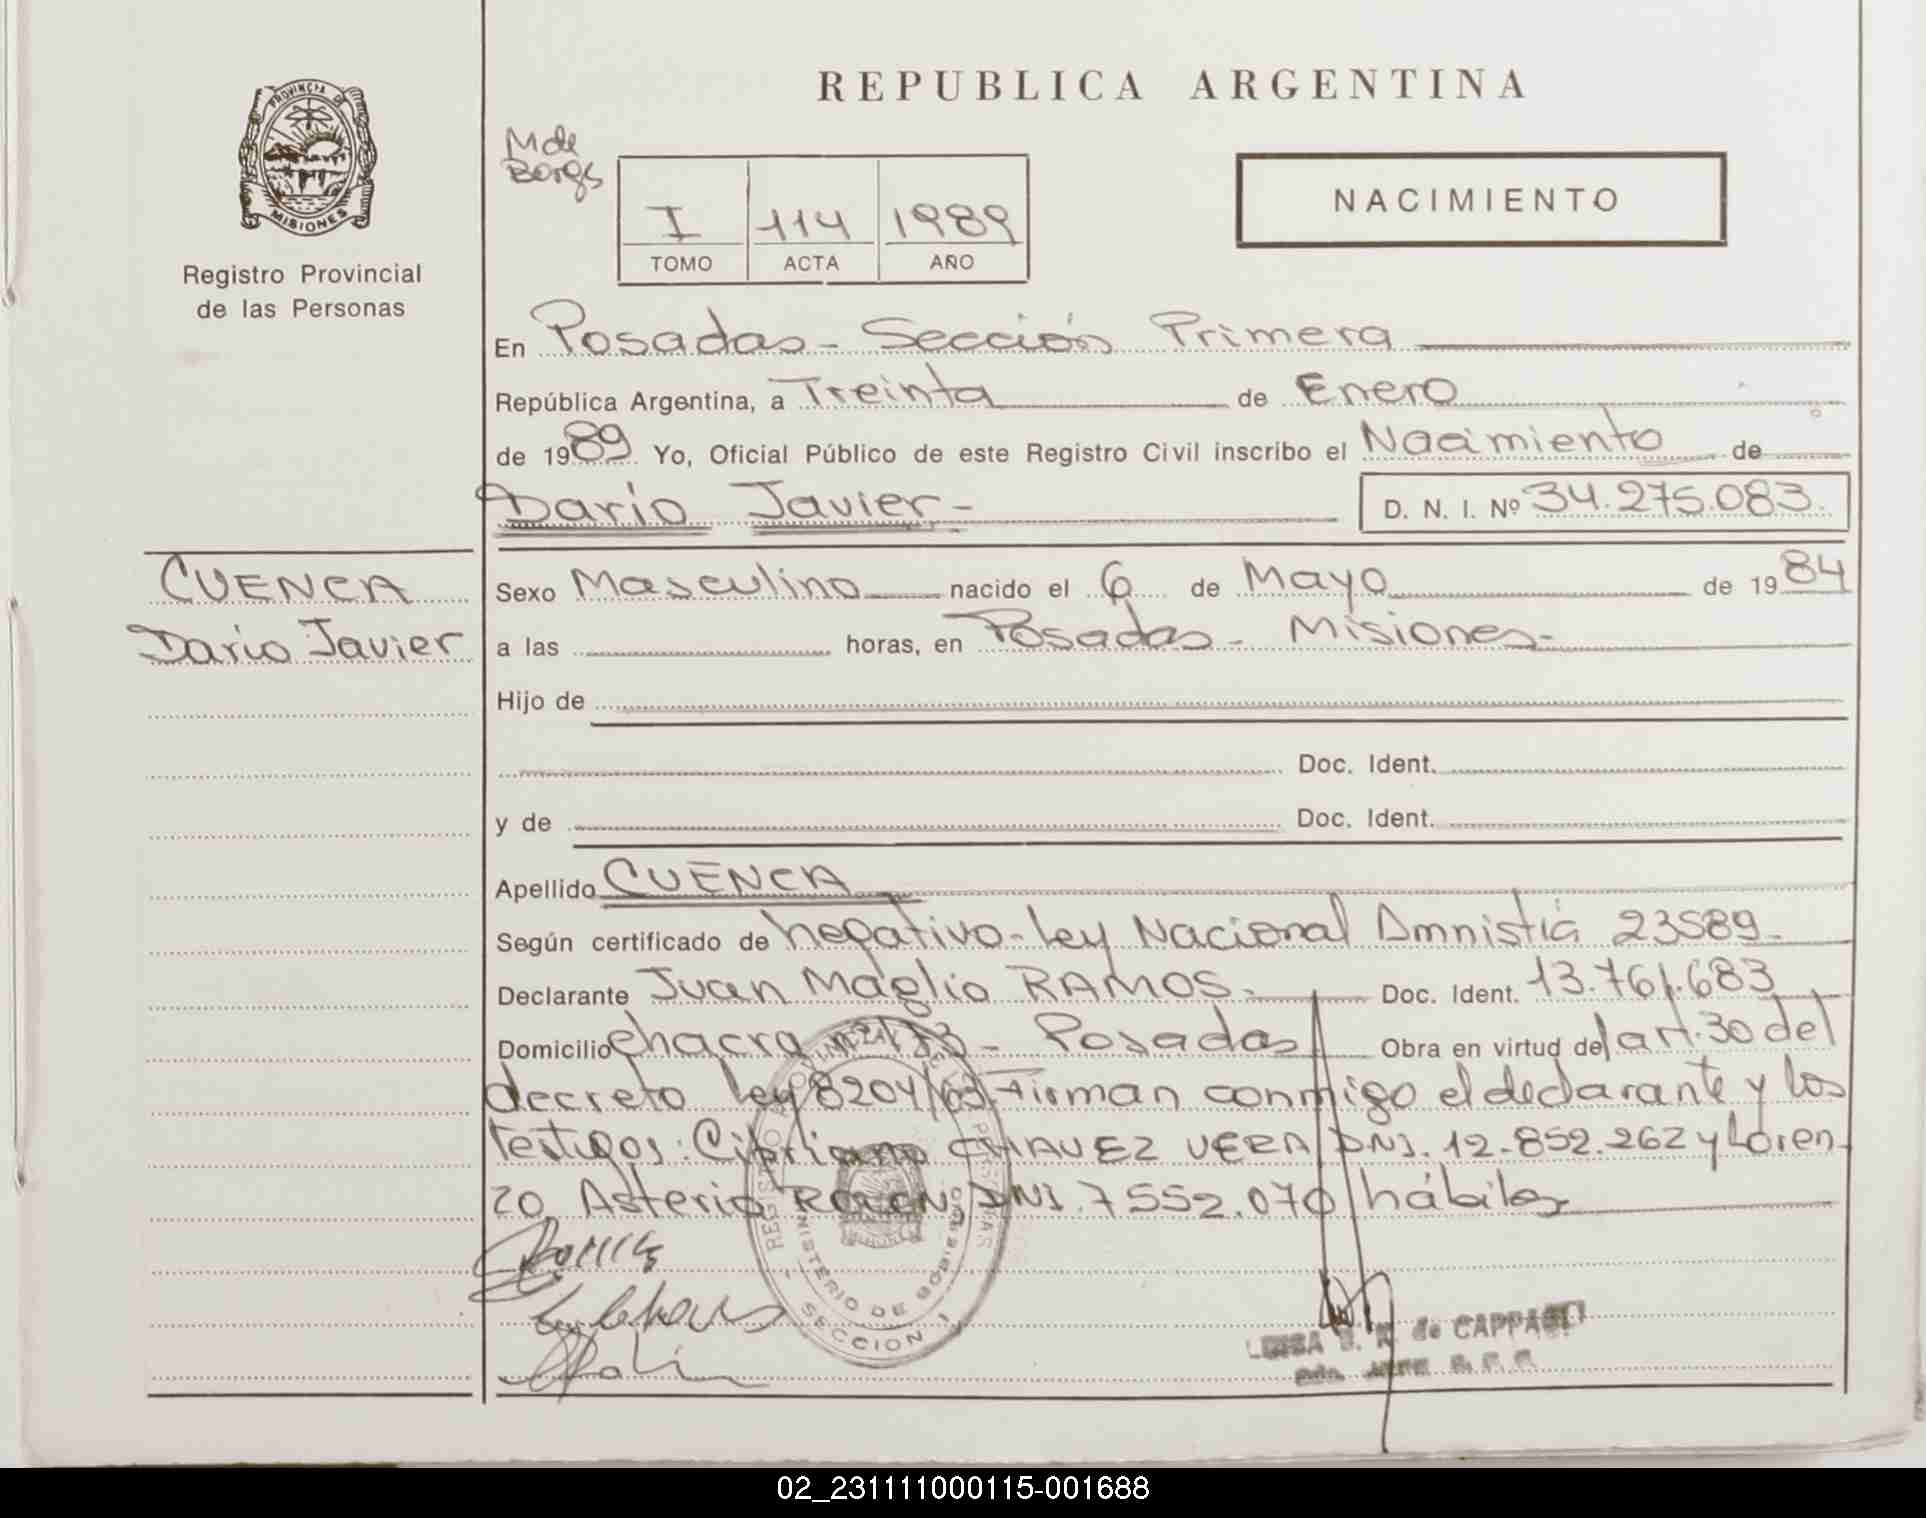 PROVINCIA DE
MISIONES
Registro Provincial
de las Personas
REPUBLICA ARGENTINA
M de
I 114 1989
TOMO ACTA AÑO
NACIMIENTO
En Posadas - Sección Primera
República Argentina, a Treinta de Enero
de 1989 Yo, Oficial Público de este Registro Civil inscribo el Nacimiento de
Darío Javier - D. N. I. Nº 34.275.083.
CUENCA
Darío Javier
Sexo Masculino nacido el 6 de Mayo de 1984
a las horas, en Posadas - Misiones -
Hijo de
Doc. Ident.
y de Doc. Ident.
Apellido CUENCA
Según certificado de negativo - Ley Nacional Amnistía 23589 -
Declarante Juan Maglio RAMOS - Doc. Ident. 13.761.683
Domicilio chacra Posadas Obra en virtud del art. 30 del
decreto Ley 8204/63. Firman conmigo el declarante y los
testigos: Cipriano CHAVEZ VERA DNI. 12.852.262 y Loren-
zo Asterio DNI. 7552.070 hábiles
MINISTERIO DE GOBIERNO
SECCION 1
de CAPPAGLI
02_231111000115-001688